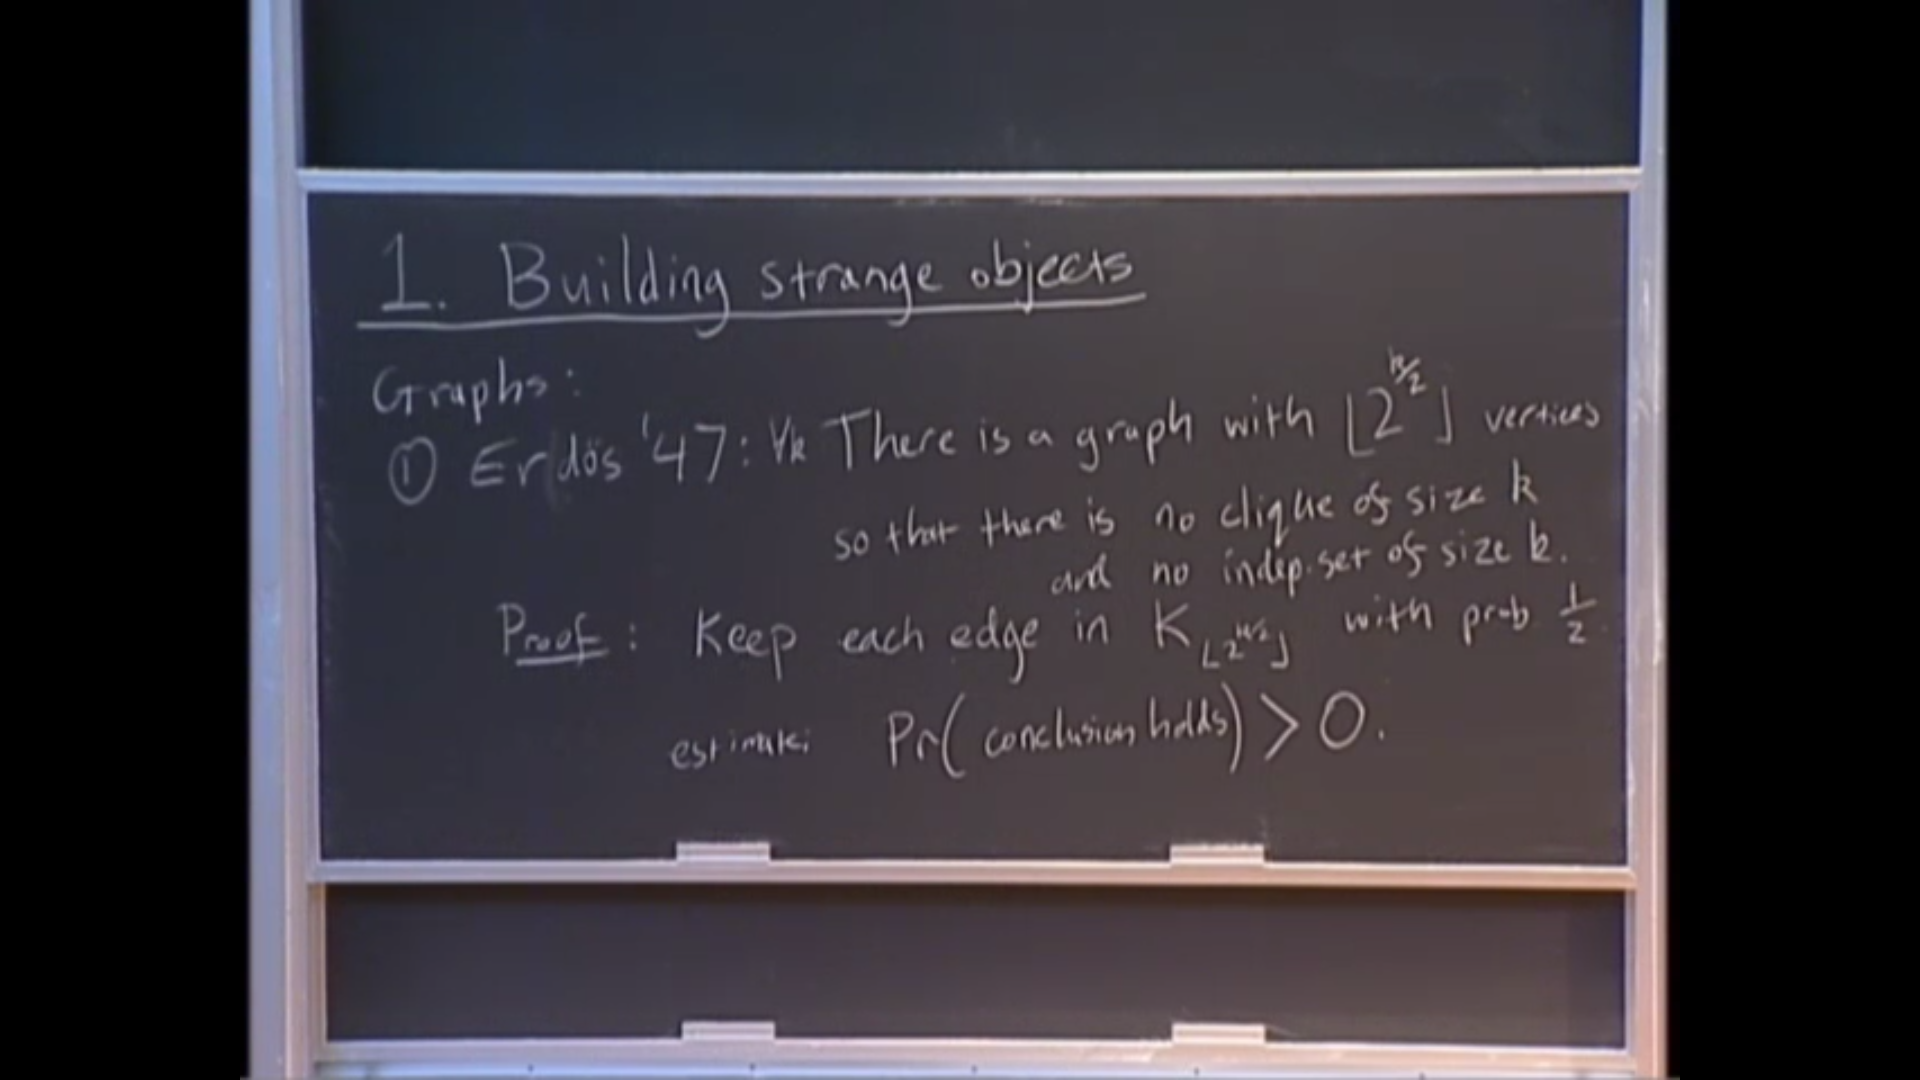 1. Building strange objects
Graphs:
① Erdös '47: ∀k There is a graph with ⌊2^{k/2}⌋ vertices
so that there is no clique of size k
and no indep. set of size k.
Proof: Keep each edge in K_{⌊2^{k/2}⌋} with prob 1/2.
estimate: Pr(conclusion holds) > 0.